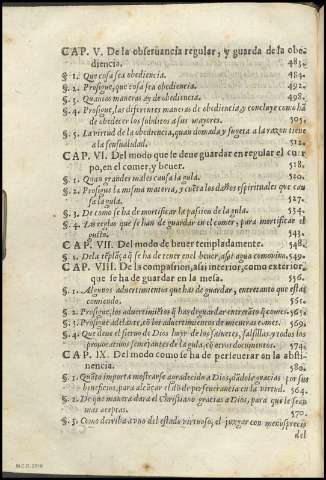 CAP. V. De la obseruancia regular, y guarda de la obe-
diencia. 483.
§ 1. Que cosa sea obediencia. 484.
§. 2. Prosigue, que cosa sea obediencia. 492.
§. 3. Quantas maneras ay de obediencia. 498.
§. 4. Prosigue, las diferentes maneras de obediencia, y concluye como hã
de obedecer los subditos a sus mayores. 505.
§. 5. La virtud de la obediencia, quan domada y sugeta a la razon tiene
a la sensualidad. 512.
CAP. VI. Del modo que le deue guardar en regular el cuer
po, en el comer, y beuer. 518.
§. 1. Quan grandes males causa la gula. 520.
§. 2. Prosigue la misma materia, y cuẽta los daños espirituales que cau
sa la gula. 527.
§. 3. De como se ha de mortificar la passion de la gula. 534.
§. 4. Las reglas que se han de guardar en el comer, para mortificar el
gusto. 543.
CAP. VII. Del modo de beuer templadamente. 548.
§. 2. De la tẽplãça q̃ se ha de tener en el beuer, assi agua como vino. 549.
CAP. VIII. De la compassion, assi interior, como exterior,
que se ha de guardar en la mesa. 556.
§. 1. Algunos aduertimientos que has de guardar, entretanto que estás
comiendo. 561.
§. 2. Prosigue, los aduertimiẽtos q̃ has de guardar entretãto q̃ comes. 569.
§. 3. Prosigue adelante, cõ los aduertimientos de mientras comes. 569.
§. 4. Que deue el sieruo de Dios huyr de los saynetes, salsillas, y todos los
prouocatiuos semejantes de la gula, cõ otros documentos. 574.
CAP. IX. Del modo como se ha de perseuerar en la absti-
nencia. 580.
§. 1. Quãto importa mostrarse agradecido a Dios, dãdole gracias por sus
beneficios, para alcãçar el dõ de perseuerancia en la virtud. 564.
§. 2. De que manera dara el Christiano gracias a Dios, para que le sean
mas aceptas. 570.
§. 3. Como derriba a vno del estado virtuoso, el juzgar con menosprecio
del